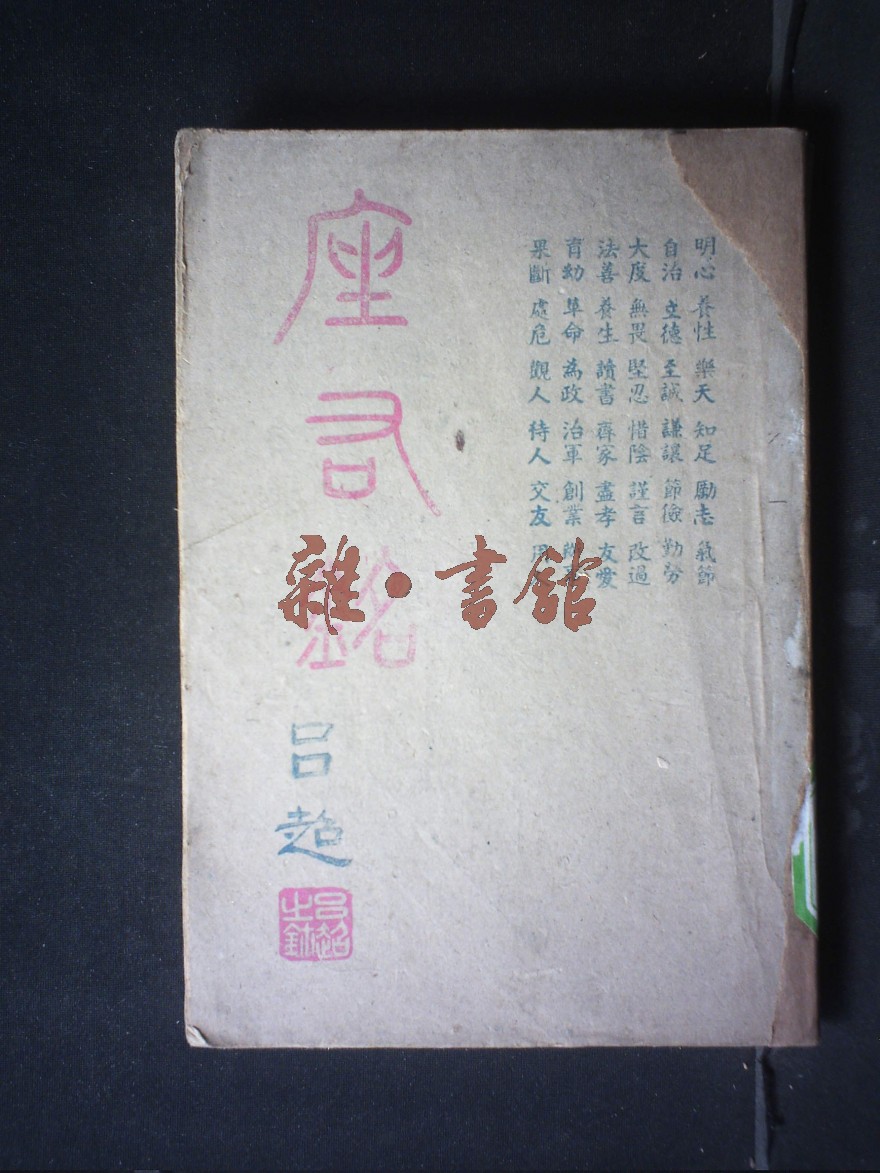 明心 養性 樂天 知足 勵志 氣節
自治 立德 至誠 謙讓 節儉 勤勞
大度 無畏 堅忍 惜陰 謹言 改過
法善 養生 讀書 齊家 盡孝 友愛
育幼 革命 為政 治軍 創業
果斷 處危 觀人 待人 交友
座右銘
呂超
呂超之鉥
雜·書館